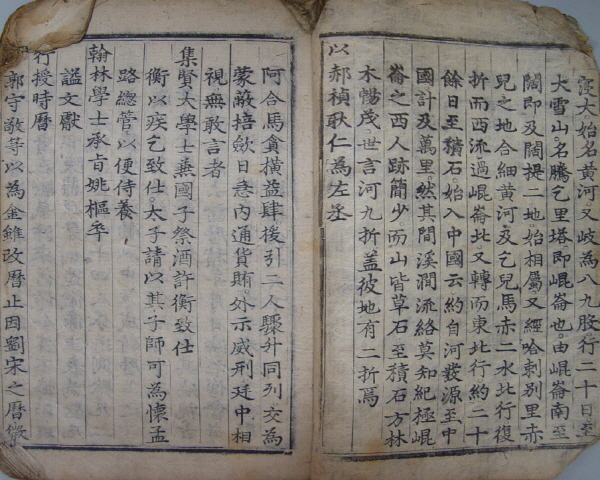 寖大始名黃河又岐為八九股行二十日至
大雪山名騰乞里塔即崐崙也由崐崙南至
闊即及闊提二地始相屬又經哈剌別里赤
兒之地合細黃河及乞兒馬赤二水北行復
折而西流過崐崙北又轉而東北行約二十
餘日至積石始入中國云約自河發源至中
國計及萬里然其間溪澗流絡莫知紀極崐
崙之西人跡簡少而山皆草石至積石方林
木暢茂世言河九折盖彼地有二折焉
以郝禎耿仁為左丞
阿合馬貪橫益肆援引二人驟升同列交為
蒙蔽掊歛日急內通貨賄外示威刑廷中相
視無敢言者
集賢大學士兼國子祭酒許衡致仕
衡以疾乞致仕太子請以其子師可為懷孟
路總管以便侍養
翰林學士承旨姚樞卒
謚文獻
行授時曆
郭守敬等以為金雖改曆止因劉宋之曆微